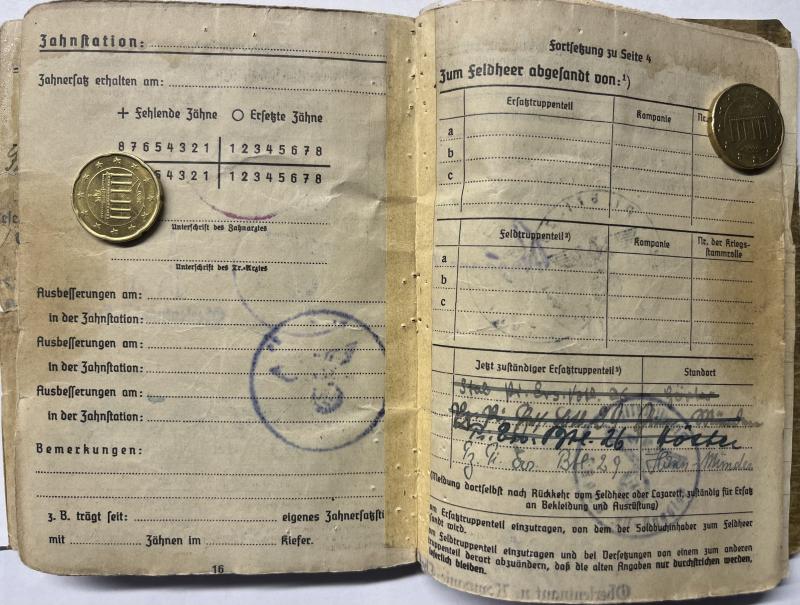 Zahnstation:
Zahnersatz erhalten am:
+ Fehlende Zähne O Ersetzte Zähne
8 7 6 5 4 3 2 1 | 1 2 3 4 5 6 7 8
5 4 3 2 1 | 1 2 3 4 5 6 7 8
Unterschrift des Zahnarztes
Unterschrift des Tr.-Arztes
Ausbesserungen am:
in der Zahnstation:
Ausbesserungen am:
in der Zahnstation:
Ausbesserungen am:
in der Zahnstation:
Bemerkungen:
z. B. trägt seit: eigenes Zahnersatzst
mit Zähnen im Kiefer.
16
Fortsetzung zu Seite 4
Zum Feldheer abgesandt von:¹)
Ersatztruppenteil Kompanie Nr.
a
b
c
Feldtruppenteil²) Kompanie Nr. der Kriegs-
stammrolle
a
b
c
Jetzt zuständiger Ersatztruppenteil³) Standort
Stab Pi. Ers. Batl. 26 Höxter
Pi. Ers. Btl. 26 Höxter
Pi. Ers. Btl. 29 Hann. Münden
(Meldung dortselbst nach Rückkehr vom Feldheer oder Lazarett, zuständig für Ersatz
an Bekleidung und Ausrüstung)
om Ersatztruppenteil einzutragen, von dem der Soldbuchinhaber zum Feldheer
sandt wird.
om Feldtruppenteil einzutragen und bei Versetzungen von einem zum anderen
truppenteil derart abzuändern, daß die alten Angaben nur durchstrichen werden,
leserlich bleiben.